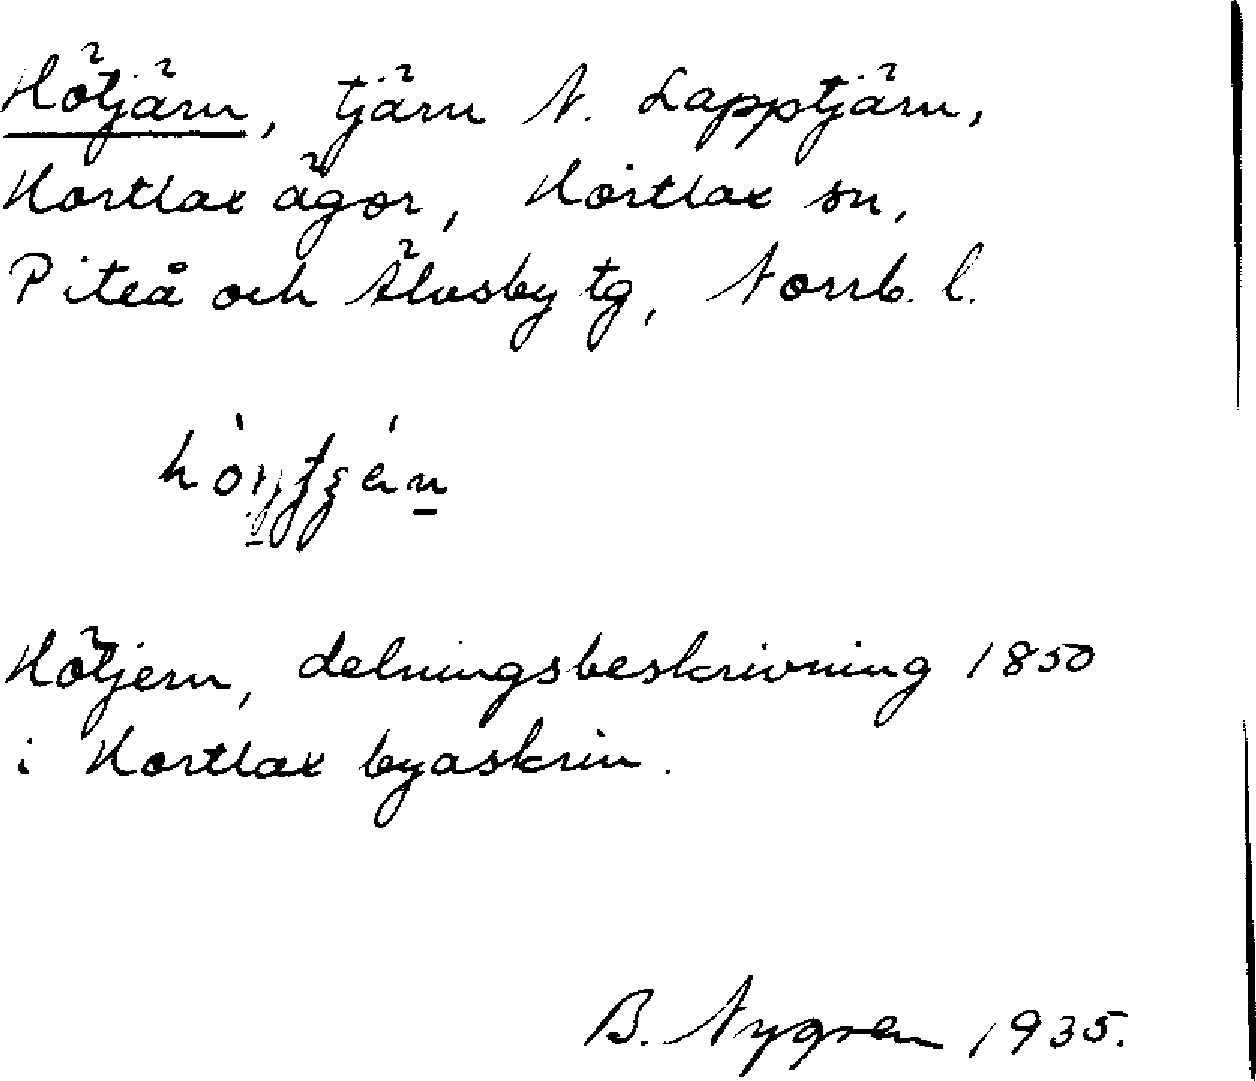 Hötjärn, tjärn N. Lapptjärn,
Hortlax ägor, Hortlax sn,
Piteå och Älvsby tg, Norrb. l.
Hötjern, delningsbeskrivning 1850
i Hortlax byaskrin.
B. Nygren 1935.